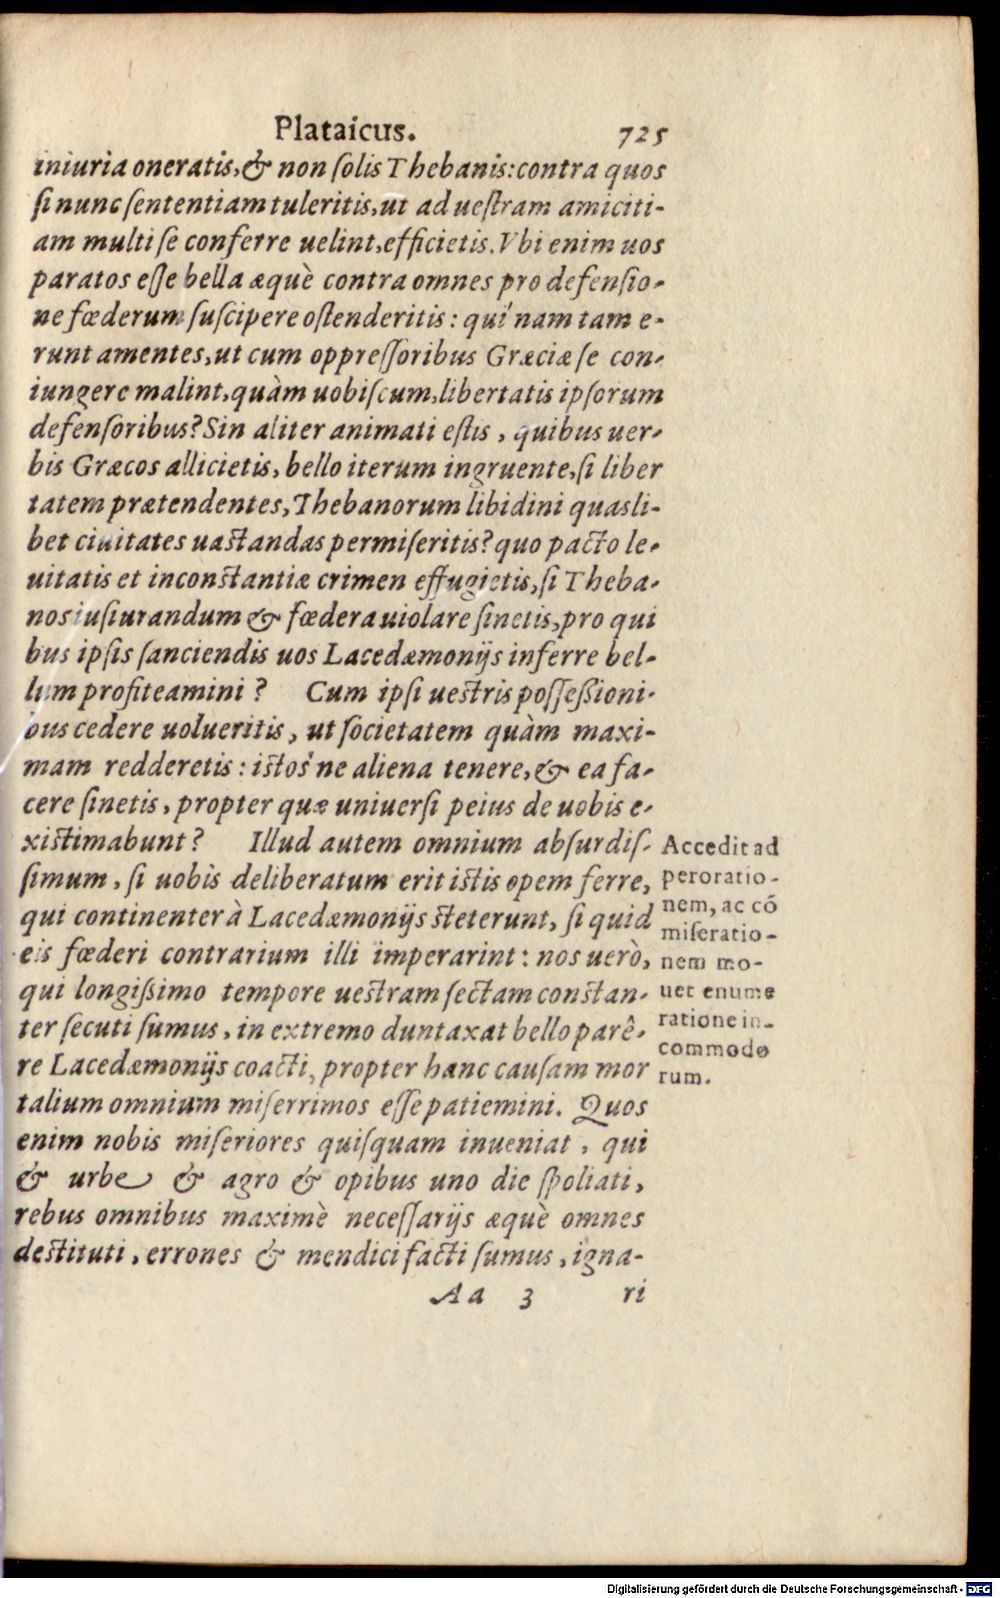 Plataicus. 725
iniuria oneratis, & non ſolis Thebanis: contra quos
ſi nunc ſententiam tuleritis, ut ad ueſtram amiciti-
am multi ſe conferre uelint, efficietis. Vbi enim uos
paratos eſſe bella æquè contra omnes pro defenſio-
ne fœderum ſuſcipere oſtenderitis: qui nam tam e-
runt amentes, ut cum oppreſſoribus Græciæ ſe con-
iungere malint, quàm uobiſcum, libertatis ipſorum
defenſoribus? Sin aliter animati eſtis, quibus uer-
bis Græcos allicietis, bello iterum ingruente, ſi liber
tatem prætendentes, Thebanorum libidini quasli-
bet ciuitates uaſtandas permiſeritis? quo pacto le-
uitatis et inconſtantiæ crimen effugietis, ſi Theba-
nos iuſiurandum & fœdera uiolare ſinetis, pro qui
bus ipſis ſanciendis uos Lacedæmonijs inferre bel-
lum profiteamini? Cum ipſi ueſtris poſſeßioni-
bus cedere uolueritis, ut ſocietatem quàm maxi-
mam redderetis: iſtos ne aliena tenere, & ea fa-
cere ſinetis, propter quæ uniuerſi peius de uobis e-
xiſtimabunt? Illud autem omnium abſurdiſ-
ſimum, ſi uobis deliberatum erit iſtis opem ferre,
qui continenter à Lacedæmonijs ſteterunt, ſi quid
eis fœderi contrarium illi imperarint: nos uerò,
qui longißimo tempore ueſtram ſectam conſtan-
ter ſecuti ſumus, in extremo duntaxat bello parê-
re Lacedæmonijs coacti, propter hanc cauſam mor
talium omnium miſerrimos eſſe patiemini. Quos
enim nobis miſeriores quiſquam inueniat, qui
& urbe & agro & opibus uno die ſpoliati,
rebus omnibus maximè neceſſarijs æquè omnes
deſtituti, errones & mendici facti ſumus, igna-
Aa 3 ri
Accedit ad
peroratio-
nem, ac cõ
miſeratio-
nem mo-
uet enume
ratione in-
commodo
rum.
Digitalisierung gefördert durch die Deutsche Forschungsgemeinschaft - DFG